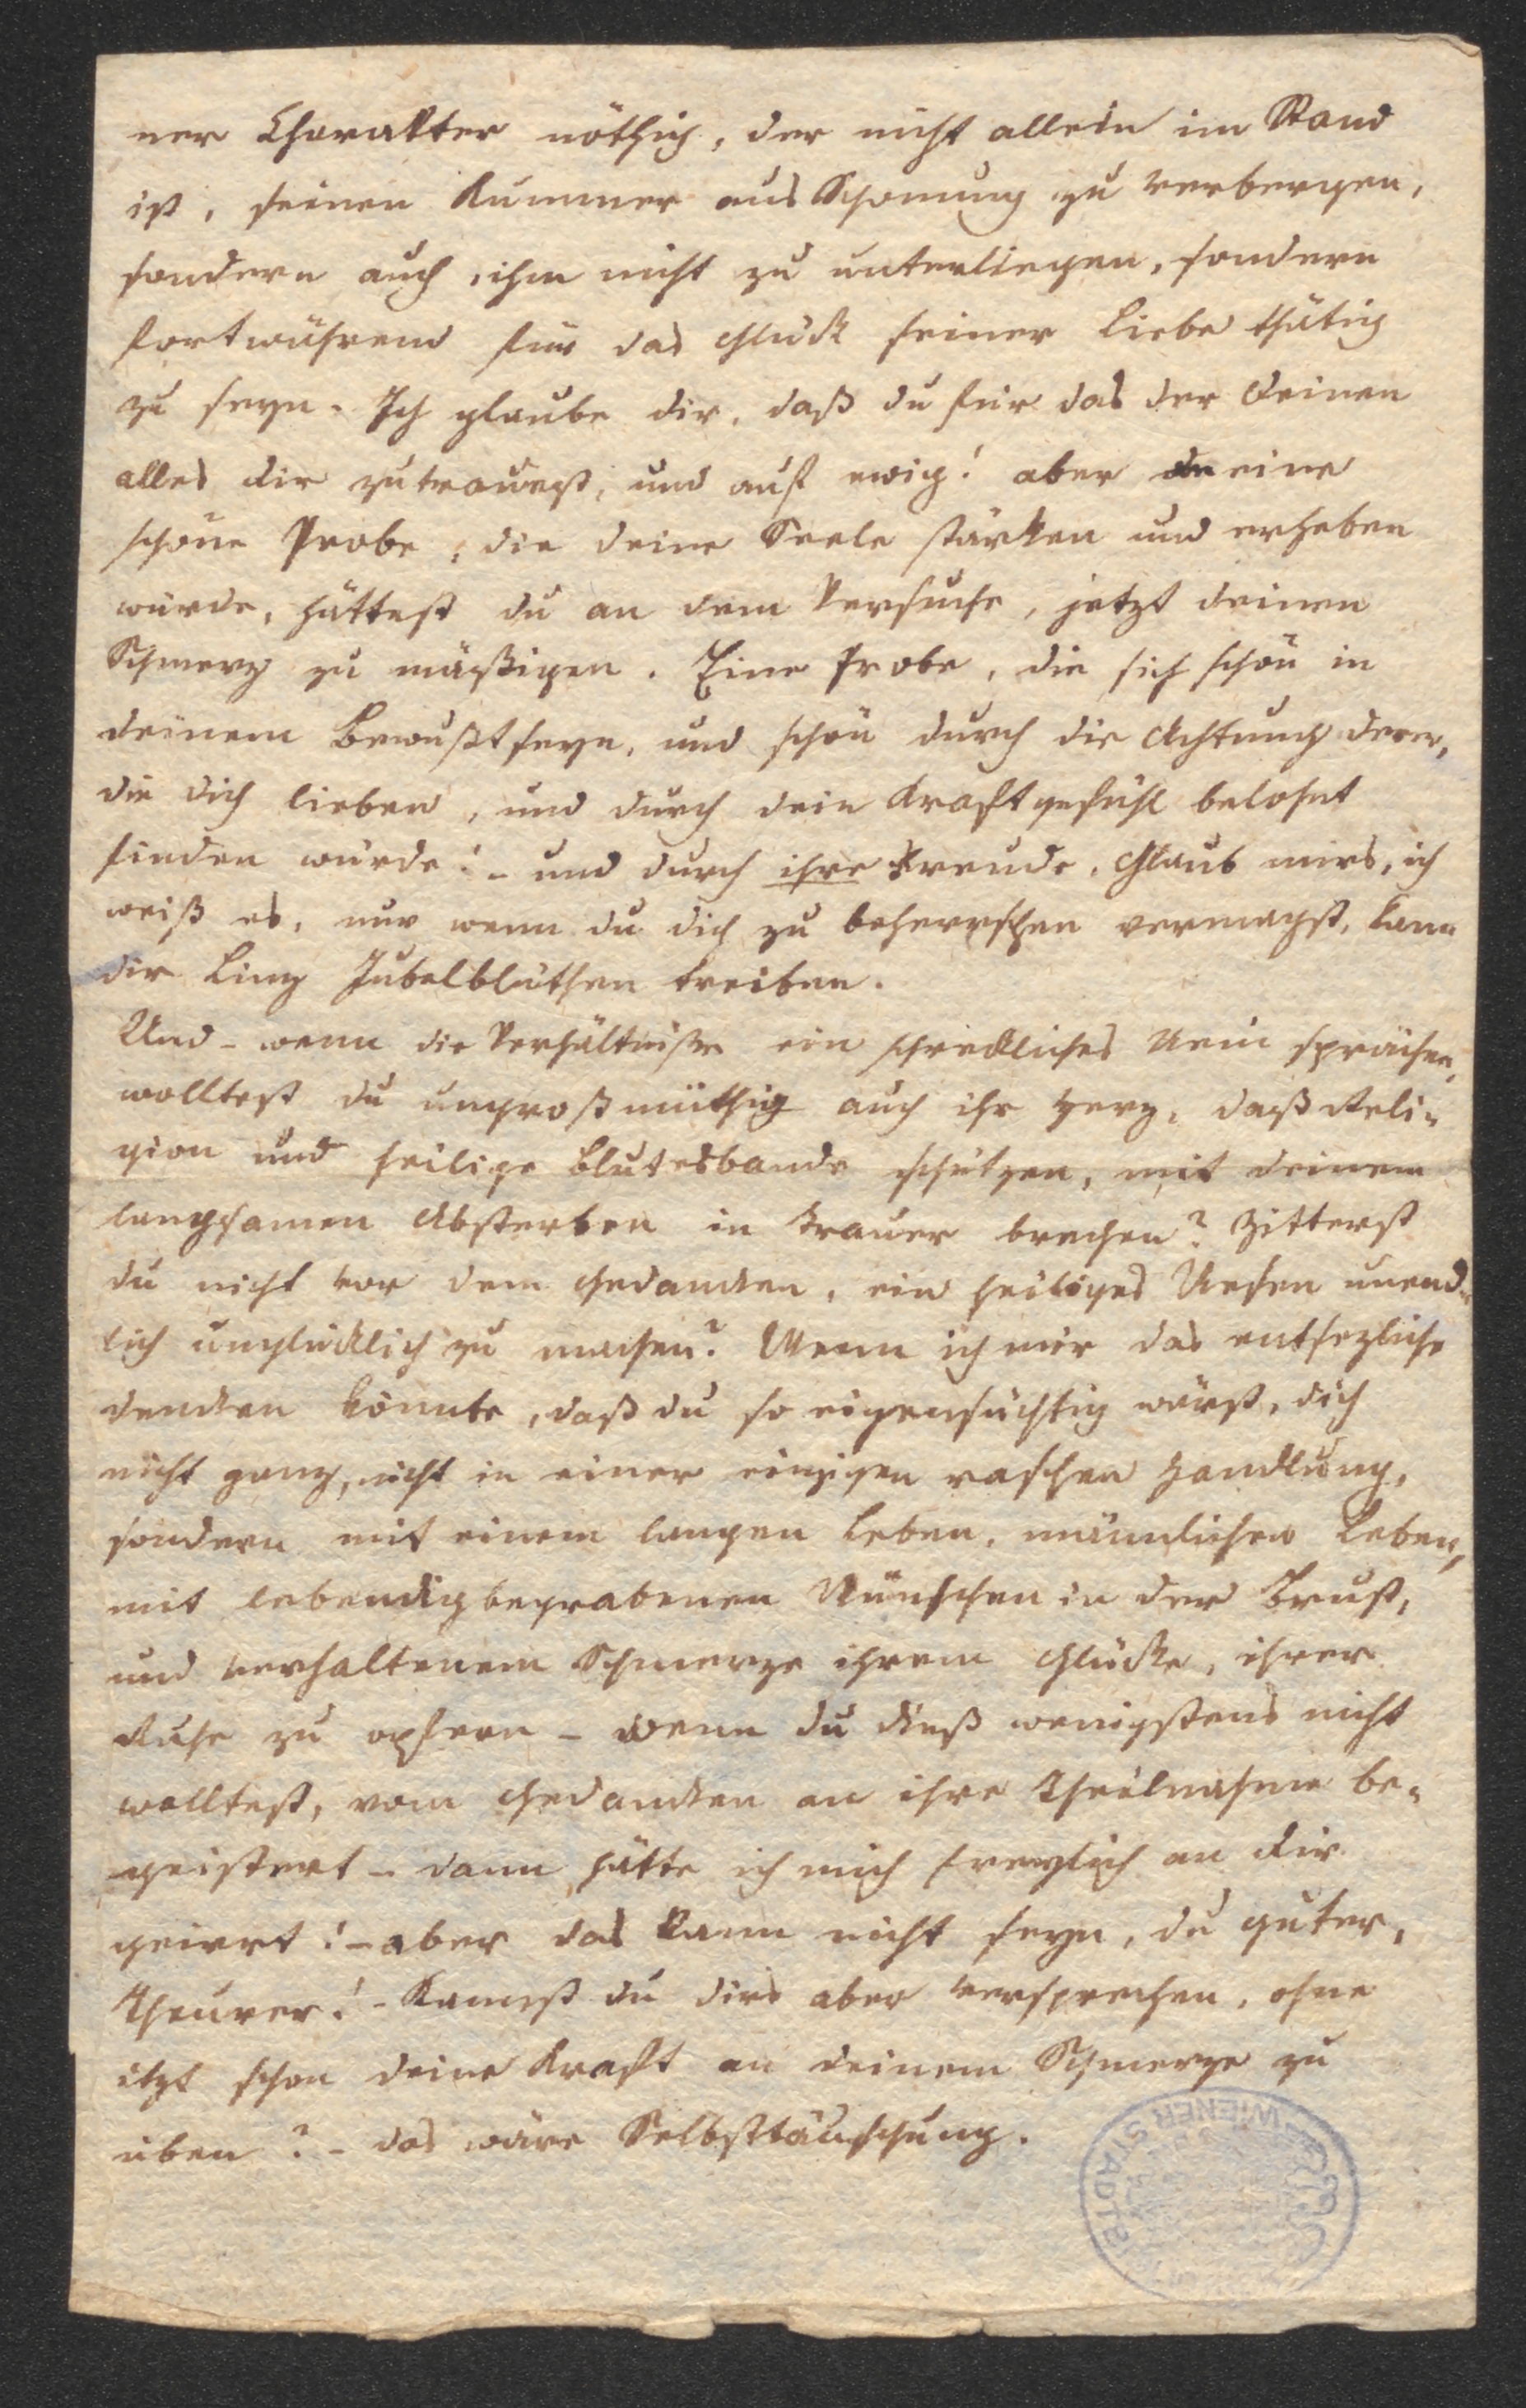 ner Charakter nöthig, der nicht allein im Stand
ist, seinen Kummer aus Schonung zu verbergen,
sondern auch, ihm nicht zu unterliegen, sondern
fortwährend für das Glück seiner Liebe thätig
zu seyn. Ich glaube dir, daß du für das der Deinen
alles dir zutrauest, und auf ewig! aber eine
schöne Probe, die deine Seele stärken und erheben
würde, hättest du an dem Versuche, jetzt deinen
Schmerz zu mäßigen. Eine Probe, die sich schön in
deinem Bewußtseyn, und schön durch die Achtung derer,
die dich lieben, und durch dein Kraftgefühl belohnt
finden würde! – und durch ihre Freude. Glaub mirs, ich
weiß es, nur wenn du dich zu beherrschen vermagst, kann
dir Linz Jubelblüthen treiben.
Und – wenn die Verhältniße ein schreckliches Nein sprächen,
wolltest du ungroßmüthig auch ihr Herz, daß Reli-
gion und heilige Blutesbande schützen, mit deinem
langsamen Absterben in Trauer brechen? Zitterst
du nicht vor dem Gedancken, ein heiliges Wesen unend-
lich unglücklich zu machen? Wenn ich mir das entsezliche
dencken könnte, daß du so eigensüchtig wärst, dich
nicht ganz, nicht in einer einzigen raschen Handlung,
sondern mit einem langen Leben, männlichen Leben,
mit lebendigbegrabenen Wünschen in der Brust,
und verhaltenem Schmerze ihrem Glücke, ihrer
Ruhe zu opfern – wenn du dieß wenigstens nicht
wolltest, vom Gedancken an ihre Theilnahme be-
geistert – dann hätte ich mich freylich an dir
geirrt! – aber das kann nicht seyn, du guter,
Theurer! – Kannst du dirs aber versprechen, ohne
itzt schon deine Kraft an deinem Schmerze zu
üben? – das wäre Selbsttäuschung.
WIENER STADT